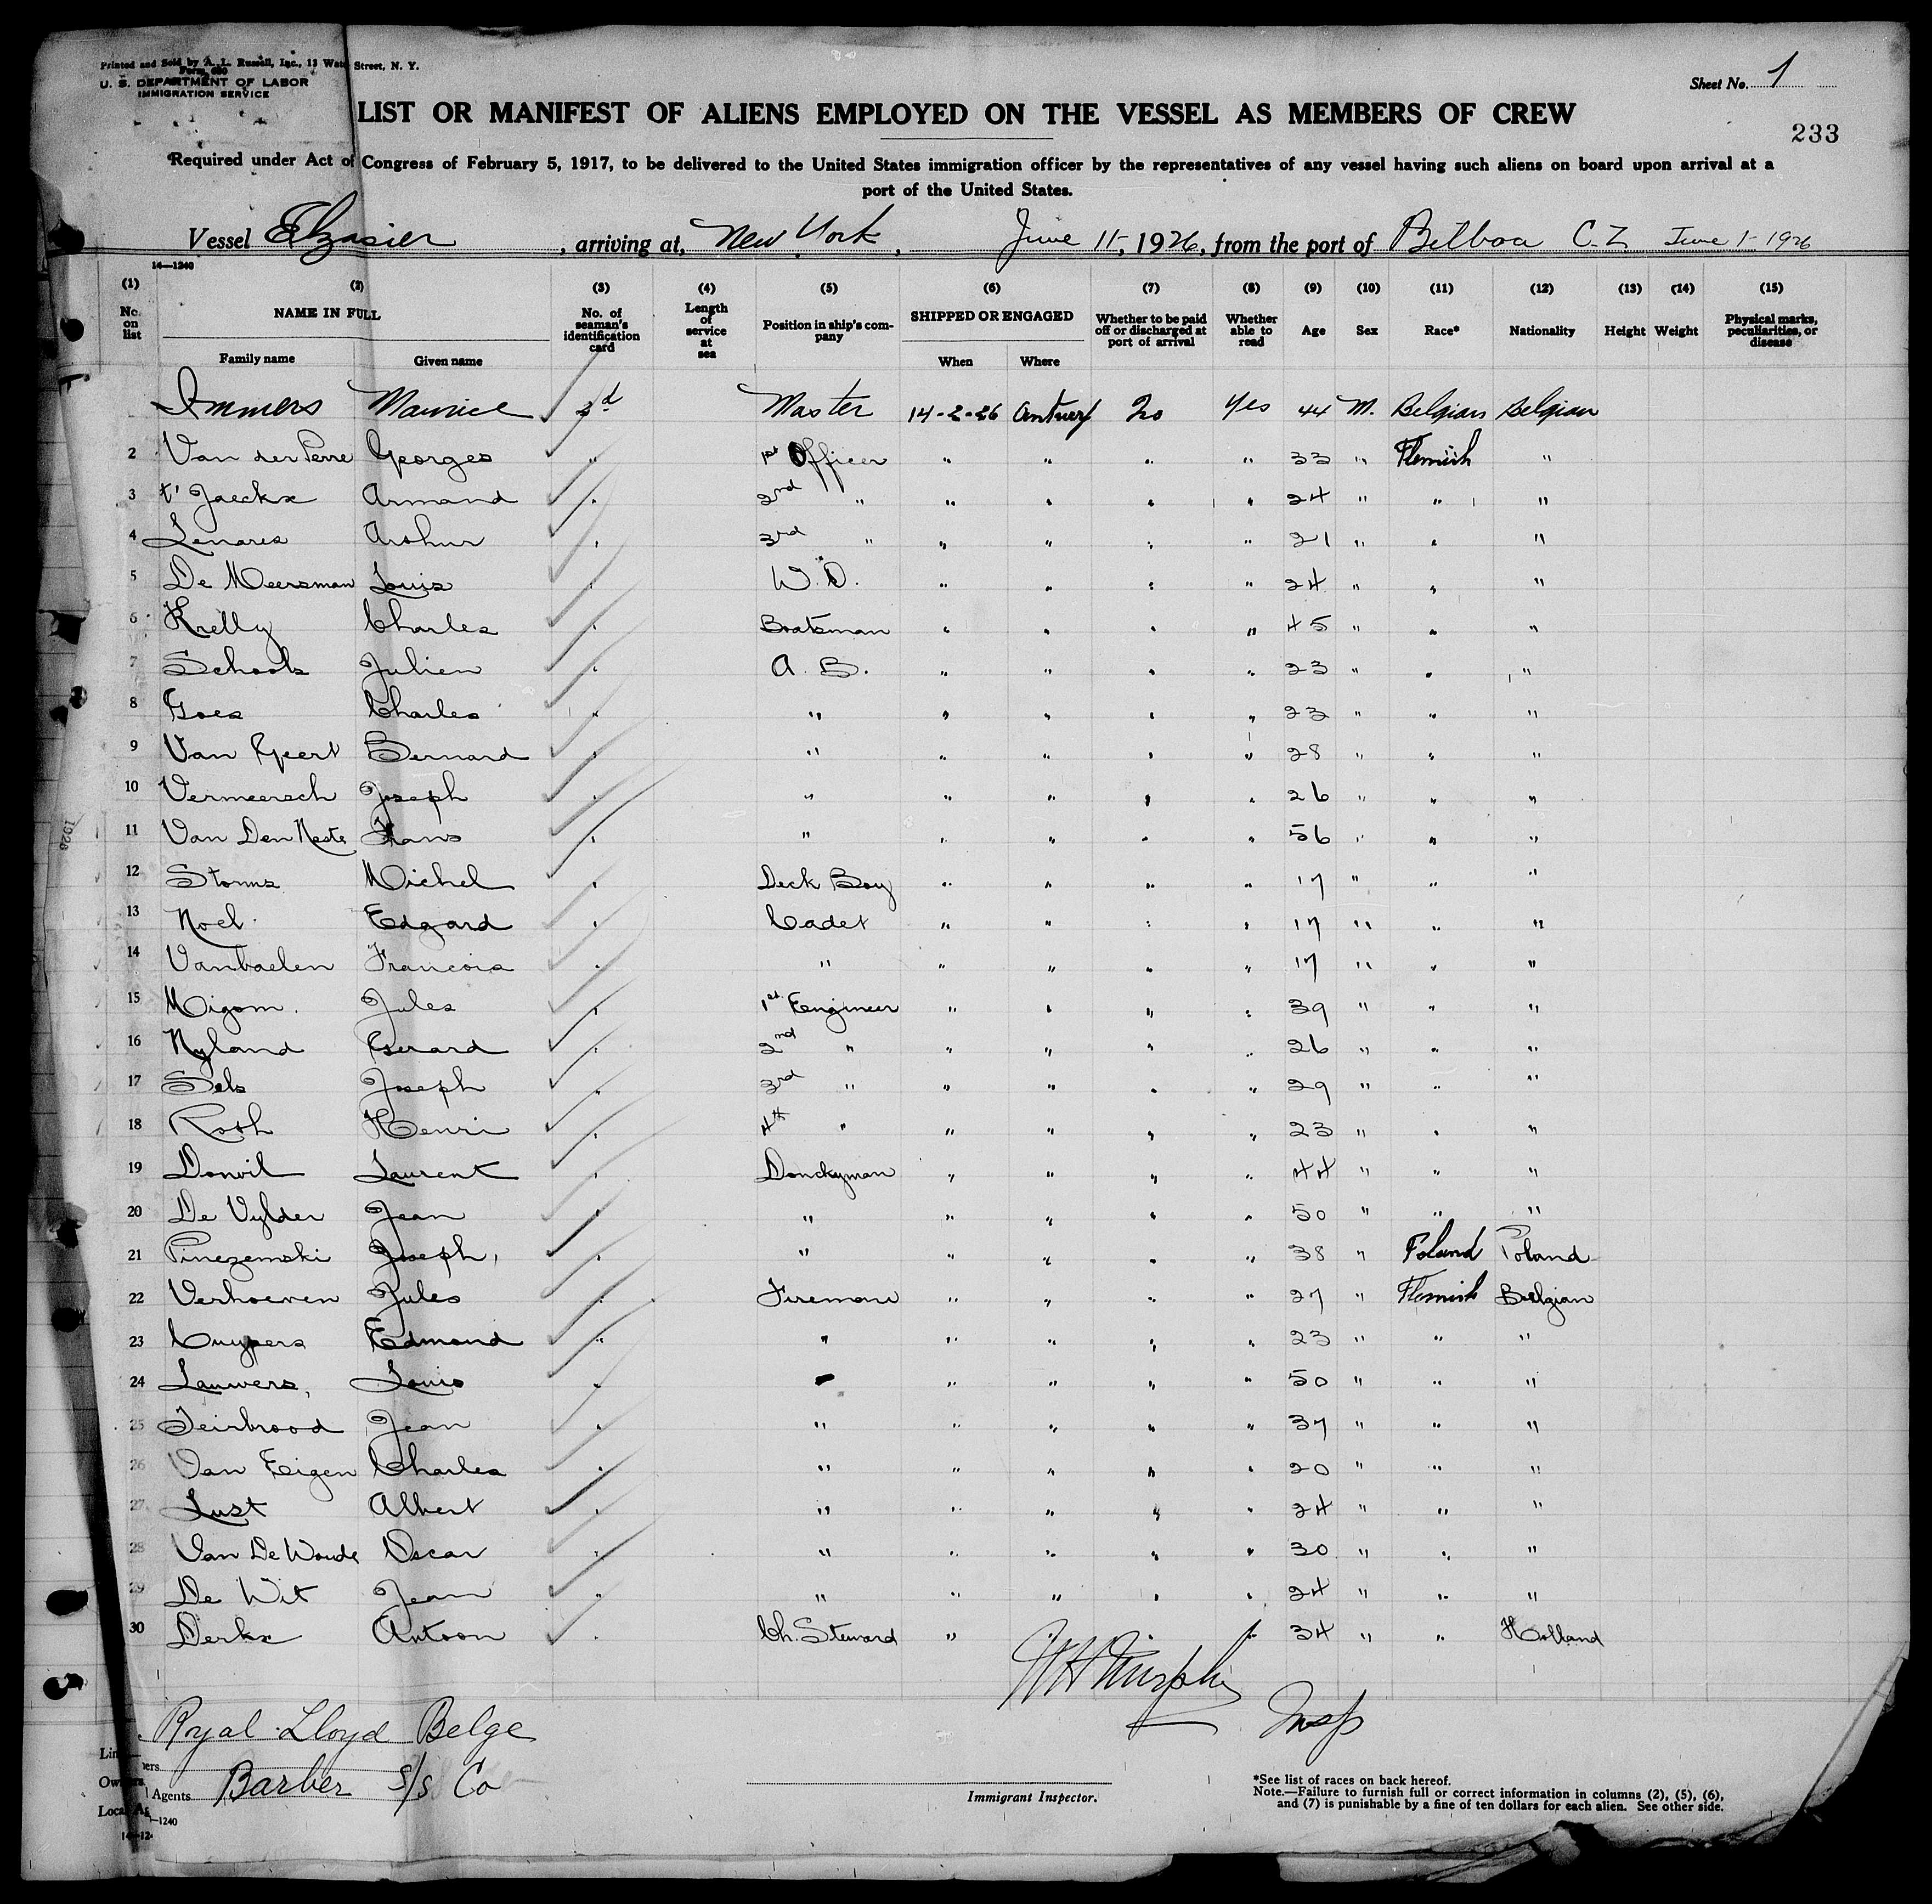 Printed and Sold by A. L. Russell, Inc., 13 Water Street, N. Y.
Form 680
U. S. DEPARTMENT OF LABOR
IMMIGRATION SERVICE
Sheet No. 1
LIST OR MANIFEST OF ALIENS EMPLOYED ON THE VESSEL AS MEMBERS OF CREW
233
Required under Act of Congress of February 5, 1917, to be delivered to the United States immigration officer by the representatives of any vessel having such aliens on board upon arrival at a
port of the United States.
Vessel Elzasier, arriving at, New York, June 11, 1926, from the port of Bilboa C.Z. June 1 - 1926
14—1240
(1) (2) (3) (4) (5) (6) (7) (8) (9) (10) (11) (12) (13) (14) (15)
No. on list NAME IN FULL Family name Given name No. of seaman's identification card Length of service at sea Position in ship's company SHIPPED OR ENGAGED When Where Whether to be paid off or discharged at port of arrival Whether able to read Age Sex Race* Nationality Height Weight Physical marks, peculiarities, or disease
Immers Maurice Master 14-2-26 Antwerp No Yes 44 M. Belgian Belgian
2 Van der Perre Georges " 1st Officer " " " " 33 " Flemish "
3 t' Jaeckx Armand " 2nd " " " " " 24 " " "
4 Lenares Arthur " 3rd " " " " " 21 " " "
5 De Meersman Louis " W.O. " " " " 24 " " "
6 Krelly Charles " Boatsman " " " " 45 " " "
7 Schools Julien " A. B. " " " " 23 " " "
8 Goes Charles " " " " " " 23 " " "
9 Van Geert Bernard " " " " " " 28 " " "
10 Vermeersch Joseph " " " " " " 26 " " "
11 Van Den Neste Frans " " " " " " 56 " " "
12 Storms Michel " Deck Boy " " " " 17 " " "
13 Noel Edgard " Cadet " " " " 17 " " "
14 Vanbaelen Francois " " " " " " 17 " " "
15 Migom. Jules " 1st Engineer " " " " 39 " " "
16 Nyland Gerard " 2nd " " " " " 26 " " "
17 Sels Joseph " 3rd " " " " " 29 " " "
18 Roth Henri " 4th " " " " " 23 " " "
19 Donvil Laurent " Donckyman " " " " 44 " " "
20 De Vylder Jean " " " " " 50 " " "
21 Pinezemski Joseph, " " " " " " 38 " Poland Poland
22 Verhoeven Jules " Firemone " " " " 27 " Flemish Belgian
23 Cuypers Edmond " " " " " " 23 " " "
24 Lauwers, Louis " " " " " " 50 " " "
25 Teirbrood Jean " " " " " " 37 " " "
26 Van Eigen Charles " " " " " " 20 " " "
27 Lust Albert " " " " " " 24 " " "
28 Van De Woude Oscar " " " " " " 30 " " "
29 De Wit Jean " " " " " " 24 " " "
30 Derkx Antoon " Ch. Steward " " " " 34 " " Holland
W H Murphy
Insp
Royal Lloyd Belge
Owners
Local Agents Barber S/S Co
Immigrant Inspector.
*See list of races on back hereof.
Note.—Failure to furnish full or correct information in columns (2), (5), (6),
and (7) is punishable by a fine of ten dollars for each alien. See other side.
14—1240